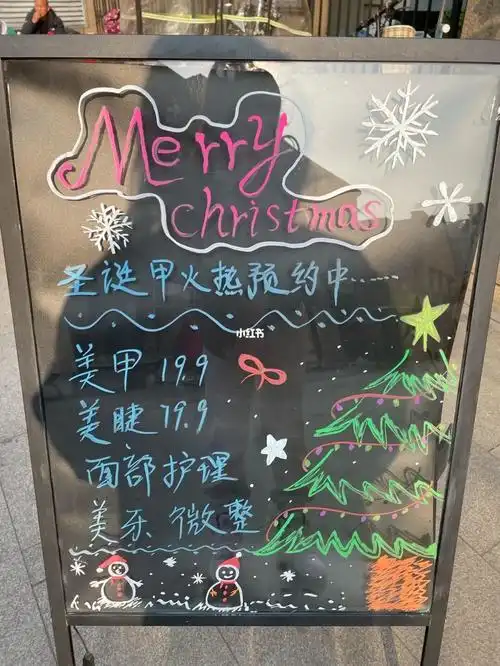 Merry
christmas
圣诞甲火热预约中……
小红书
美甲 19.9
美睫 79.9
面部护理
美乐微整